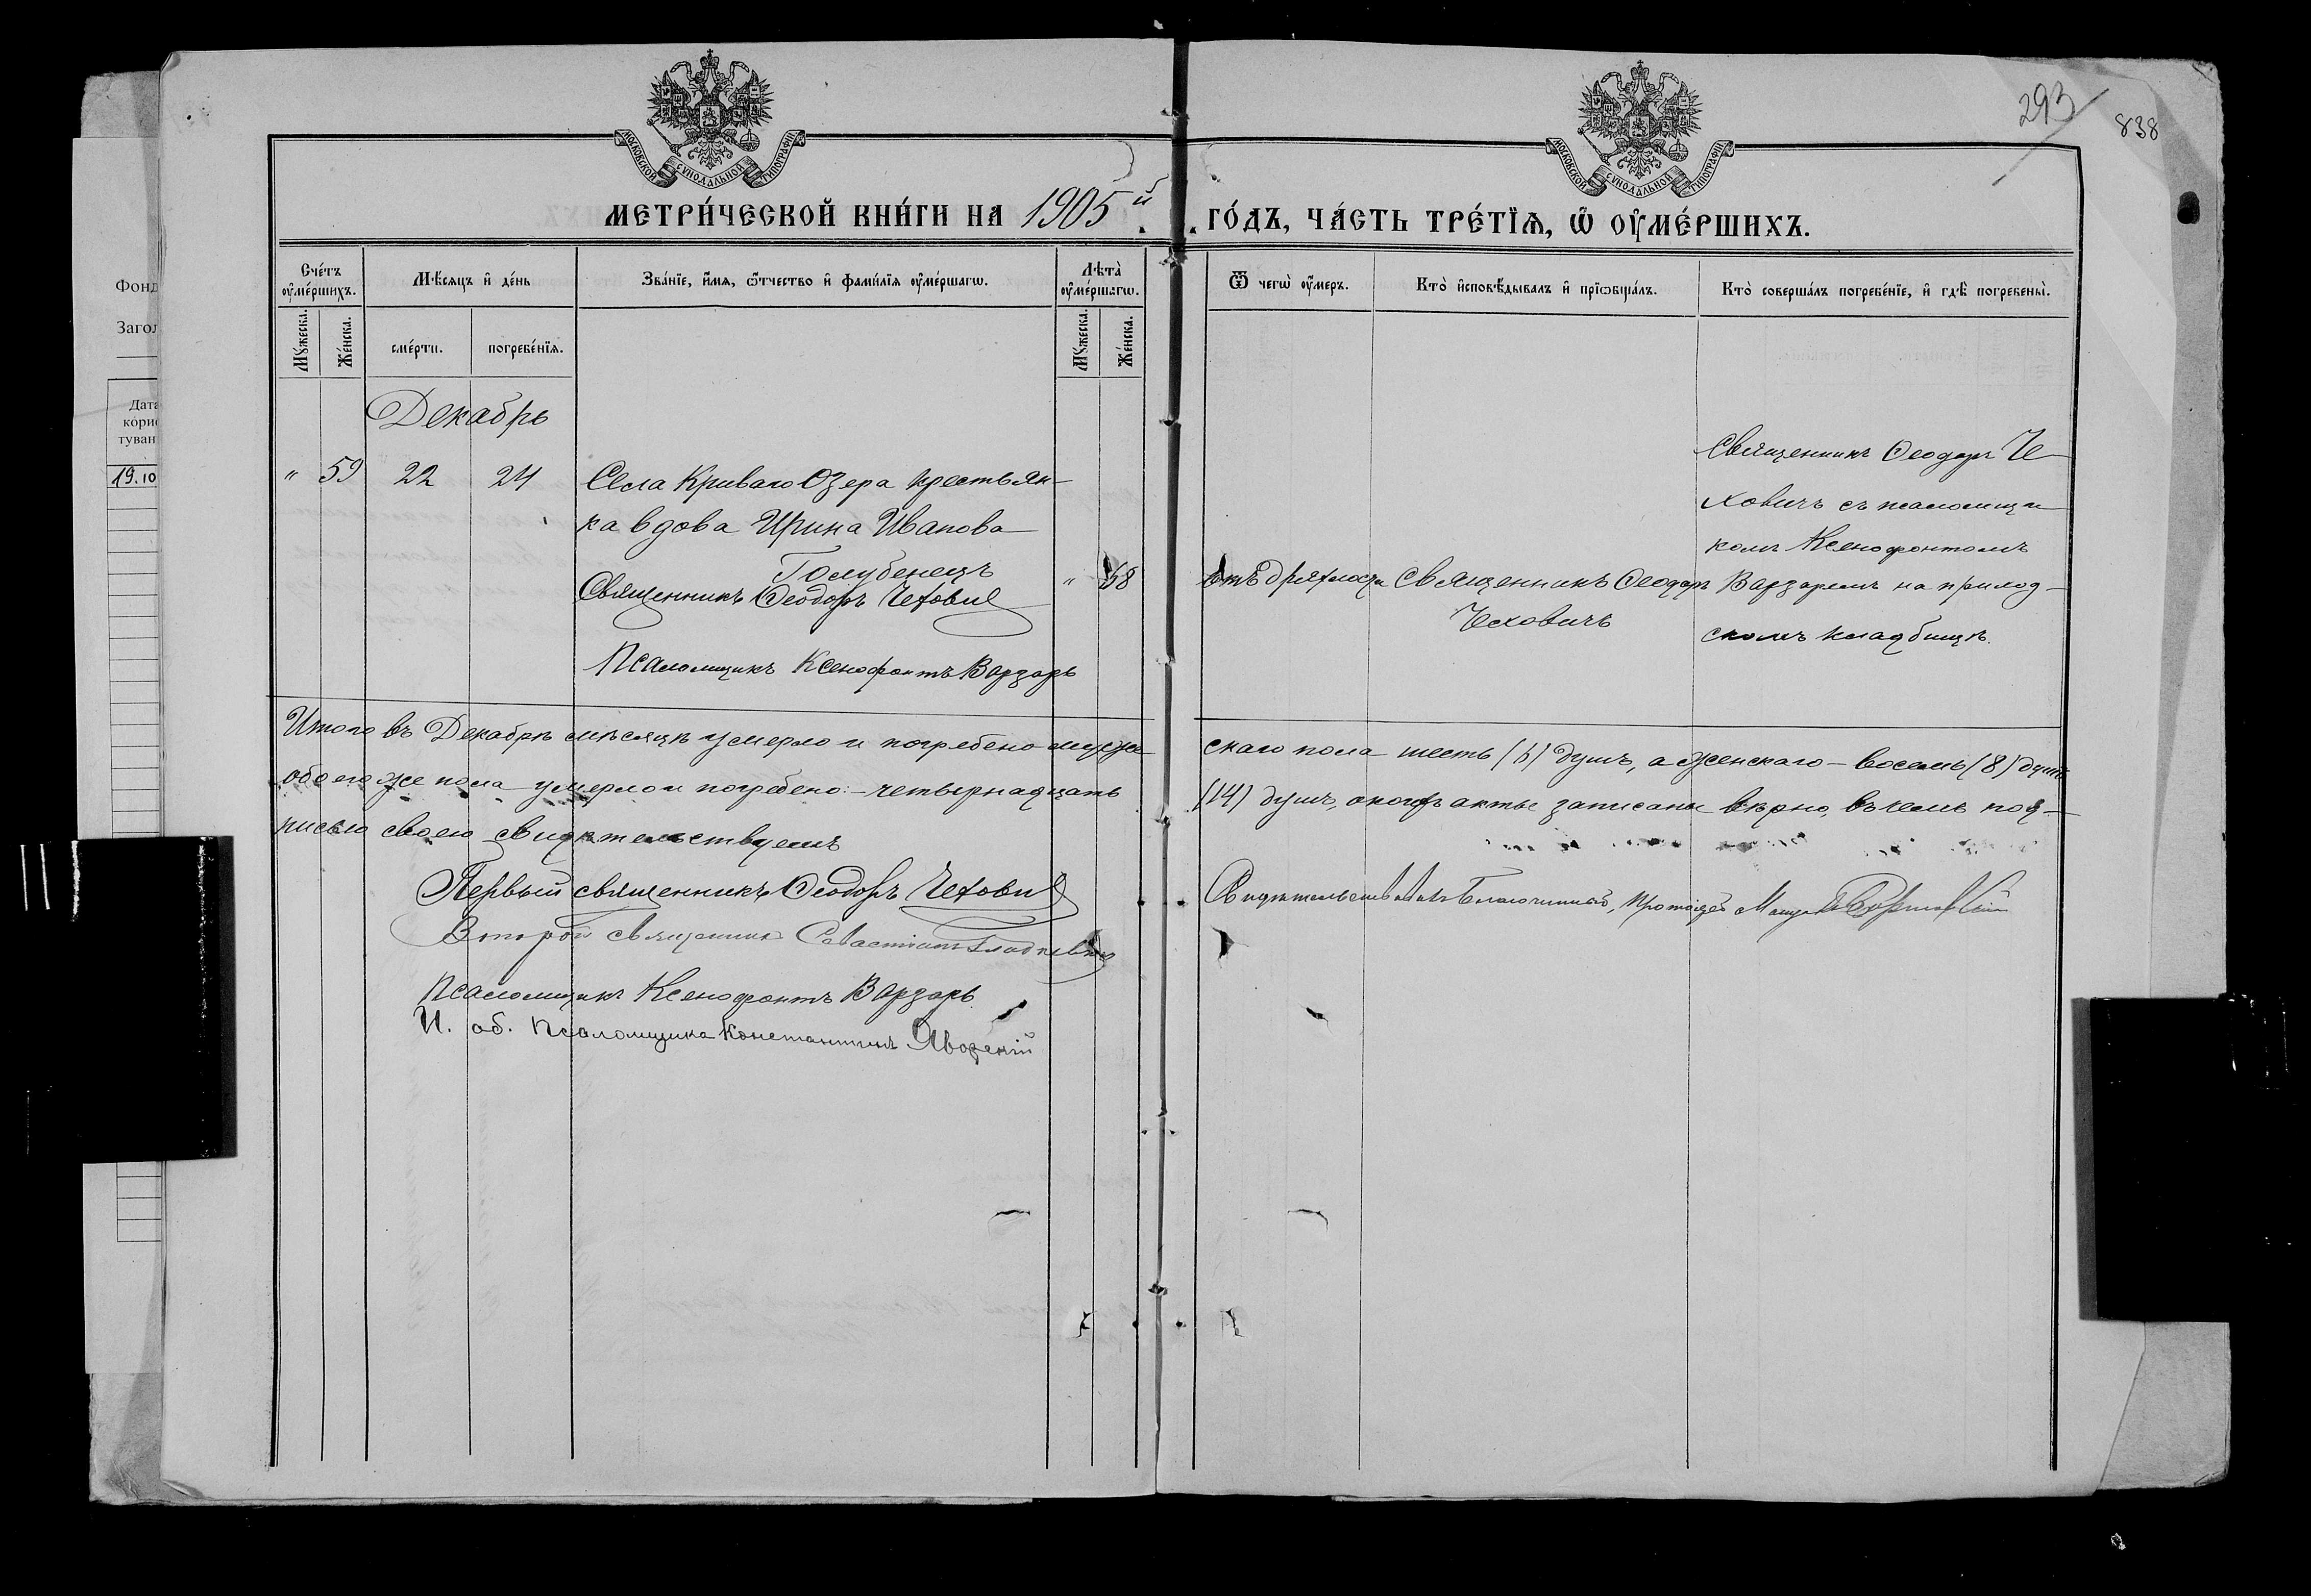 293
838
МОСКОВСКОЙ СѴНОДАЛЬНОЙ ТИПОГРАФІИ
МОСКОВСКОЙ СѴНОДАЛЬНОЙ ТИПОГРАФІИ
МЕТРИ́ЧЕСКОЙ КНИ́ГИ НА 1905й ГО́ДЪ, ЧА́СТЬ ТРЕ́ТІѦ, Ѡ ОУ҆МЕ́РШИХЪ.
Фонд
Загол
Дата
корис
туван
19.10
Сче́тъ оу҆ме́ршихъ.
Мѣ́сѧцъ и҆ де́нь
Зва́нїе, и҆́мѧ, ѻ҆́тчество и҆ фами́лїѧ оу҆ме́ршагѡ.
Лѣта̀ оу҆ме́ршагѡ.
Ѿ чегѡ̀ оу҆́меръ.
Кто̀ и҆сповѣ́дывалъ и҆ прїѡбща́лъ.
Кто̀ соверша́лъ погребе́нїе, и҆ гдѣ̀ погребены̀.
Мꙋ́жеска.
Же́нска.
сме́рти.
погребе́нїѧ.
Мꙋ́жеска.
Же́нска.
Декабрь
" 59 22 24
Села Криваго Озера крестьян-
ка вдова Ирина Иванова
Голубенецъ
Священникъ Ѳеодоръ Чехович
Псаломщикъ Ксенофонтъ Варзарь
" 68
отъ дряхлости
Священникъ Ѳеодоръ
Чеховичъ
Священникъ Ѳеодоръ Че-
ховичъ съ псаломщи
комъ Ксенофонтомъ
Варзаремъ на приход-
скомъ кладбищѣ.
Итого въ Декабрѣ мѣсяцѣ умерло и погребено мужескаго пола шесть (6) душъ, а женскаго - восемь (8) душъ
обоего же пола умерло и погребено - четырнадцать (14) душъ, о коихъ акты записаны вѣрно, въ чемъ под-
писью своею свидѣтельствуемъ
Первый священникъ Ѳеодоръ Чехович
Второй священник Севастіанъ
Псаломщикъ Ксенофонтъ Варзарь
И. об. Псаломщика Константинъ Яворскій
Свидѣтельствовалъ Благочинный, Протоіерей